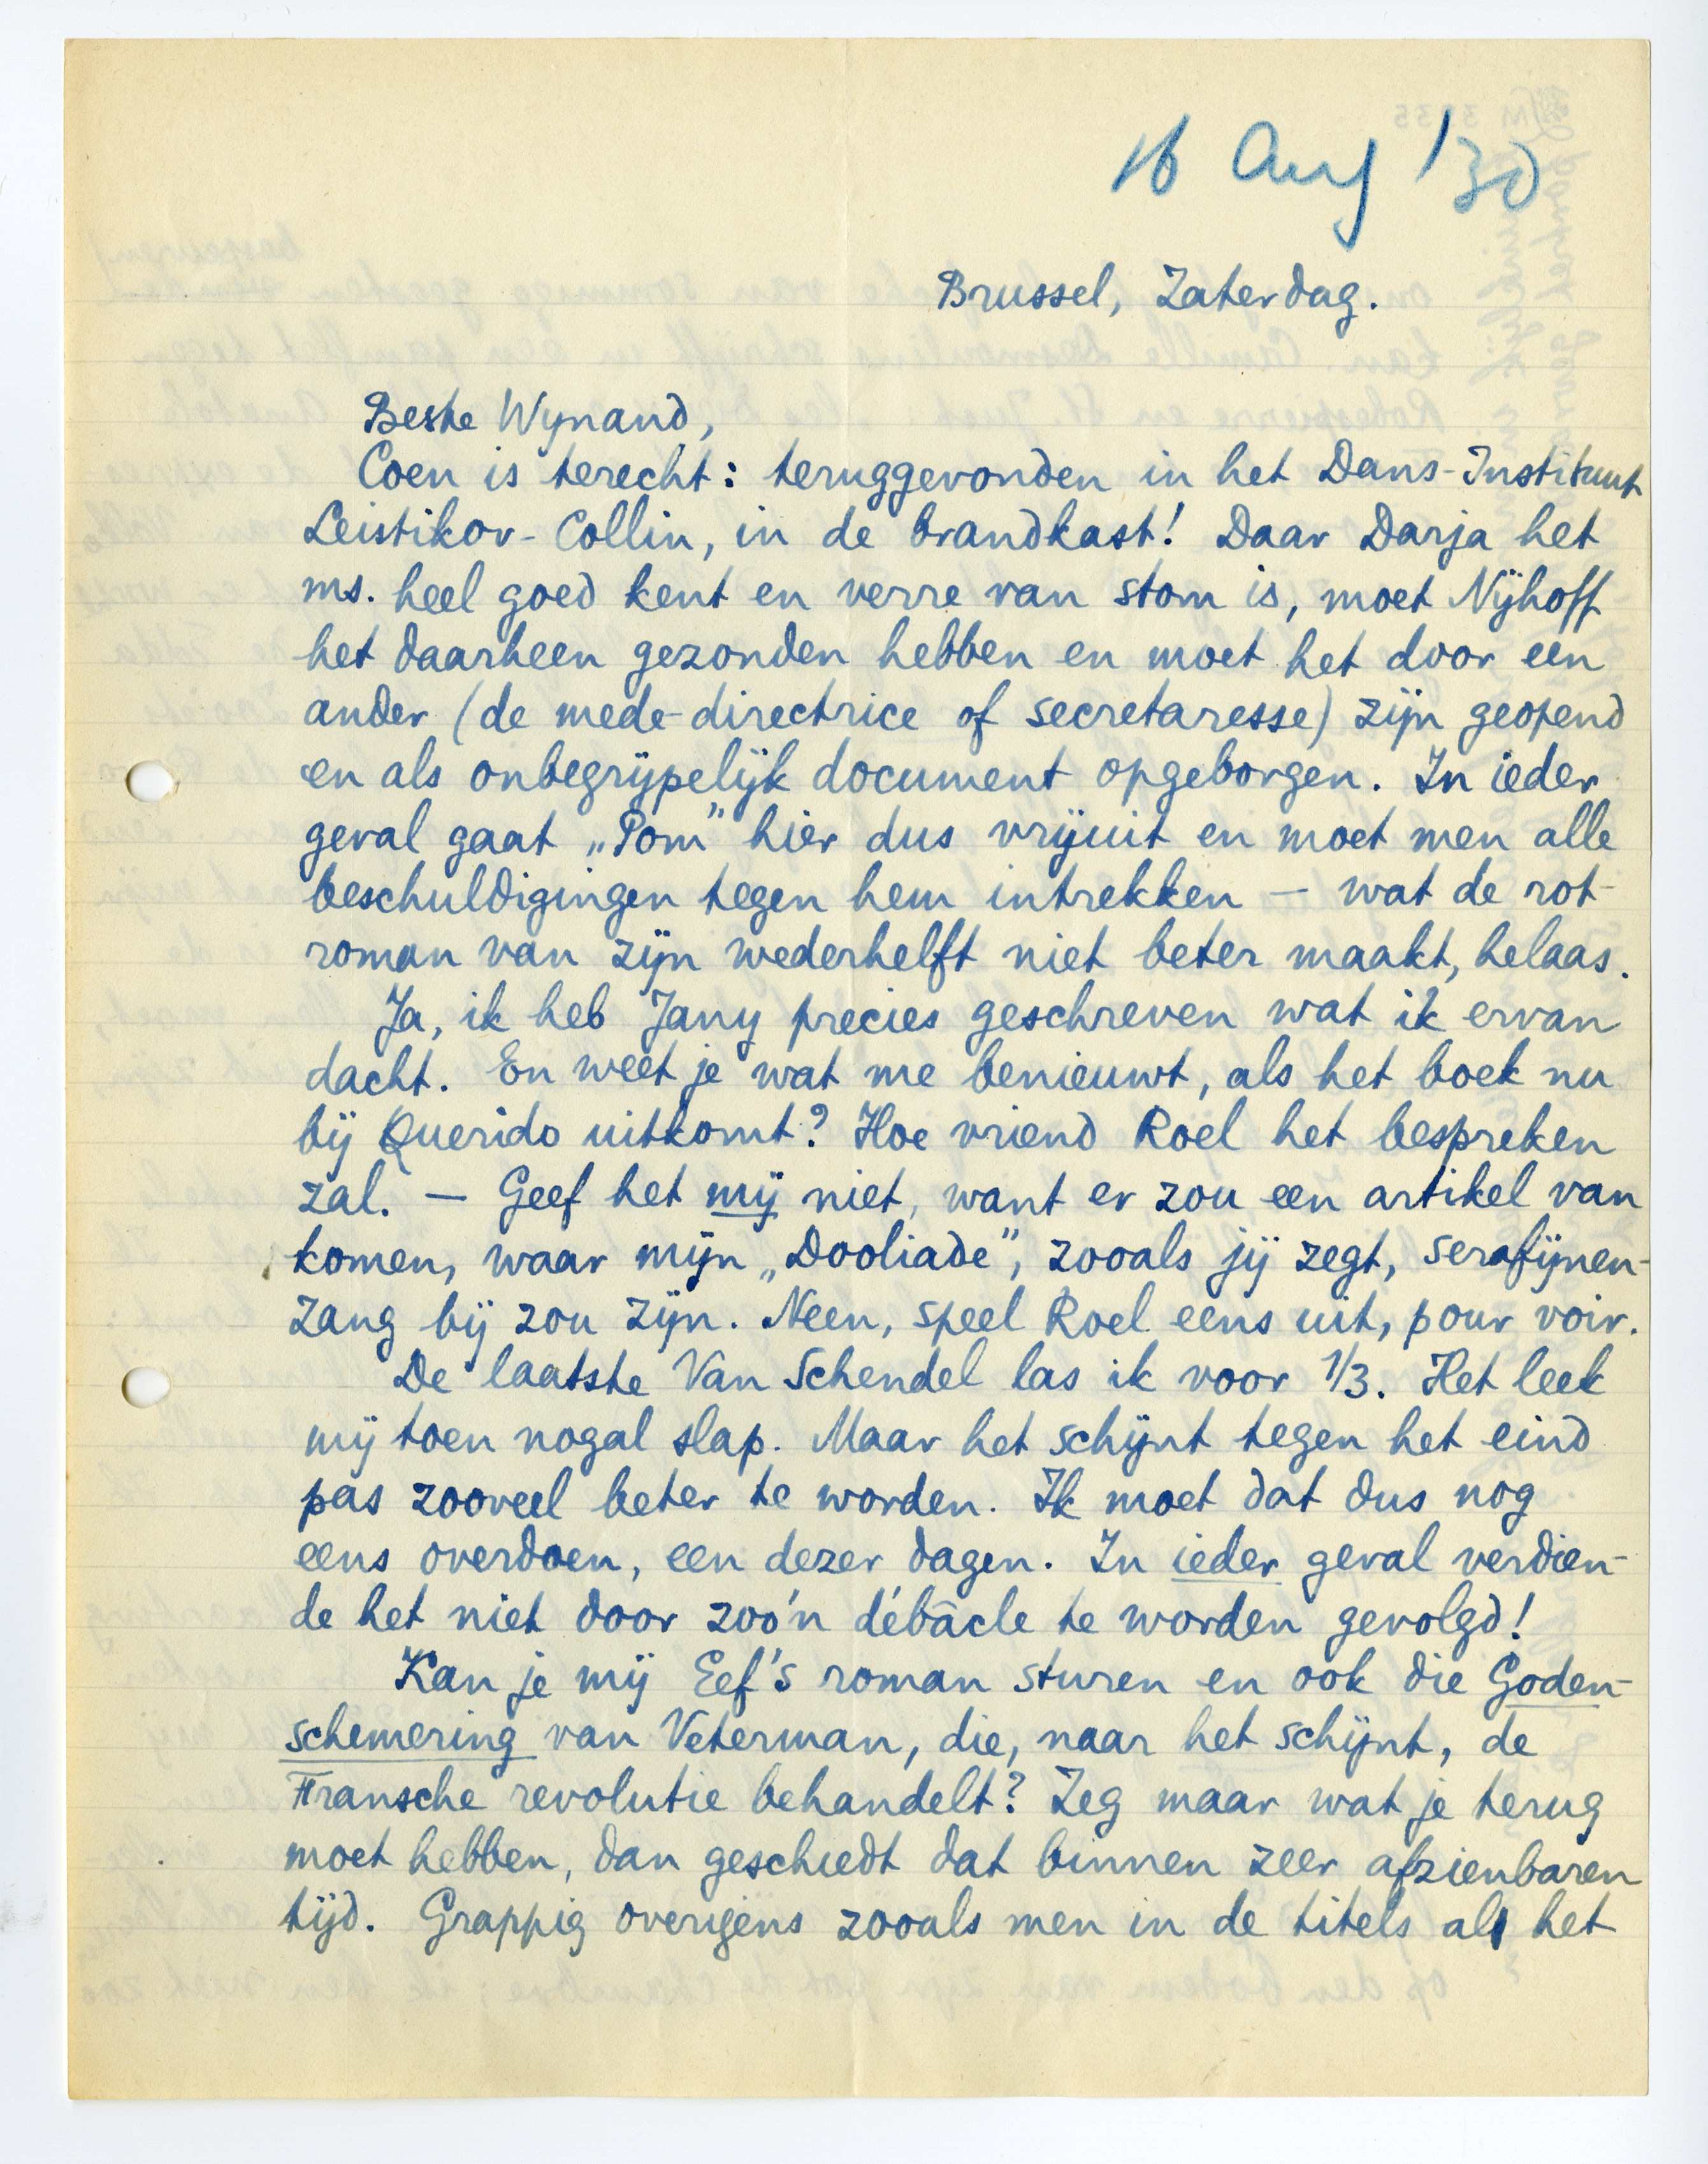 16 Aug '30
Brussel, Zaterdag.
Beste Wynand,
Coen is terecht: teruggevonden in het Dans-Instituut
Leistikov-Collin, in de brandkast! Daar Darja het
ms. heel goed kent en verre van stom is, moet Nijhoff
het daarheen gezonden hebben en moet het door een
ander (de mede-directrice of secretaresse) zijn geopend
en als onbegrijpelijk document opgeborgen. In ieder
geval gaat „Pom” hier dus vrijuit en moet men alle
beschuldigingen tegen hem intrekken — wat de rot-
roman van zijn wederhelft niet beter maakt, helaas.
Ja, ik heb Jany precies geschreven wat ik ervan
dacht. En weet je wat me benieuwt, als het boek nu
bij Querido uitkomt? Hoe vriend Roel het bespreken
zal. — Geef het mij niet, want er zou een artikel van
komen, waar mijn „Dooliade”, zooals jij zegt, serafijnen-
zang bij zou zijn. Neen, speel Roel eens uit, pour voir.
De laatste Van Schendel las ik voor 1/3. Het leek
mij toen nogal slap. Maar het schijnt tegen het eind
pas zooveel beter te worden. Ik moet dat dus nog
eens overdoen, een dezer dagen. In ieder geval verdien-
de het niet door zoo'n débâcle te worden gevolgd!
Kan je mij Eef's roman sturen en ook die Goden-
schemering van Veterman, die, naar het schijnt, de
Fransche revolutie behandelt? Zeg maar wat je terug
moet hebben, dan geschiedt dat binnen zeer afzienbaren
tijd. Grappig overigens zooals men in de titels al het